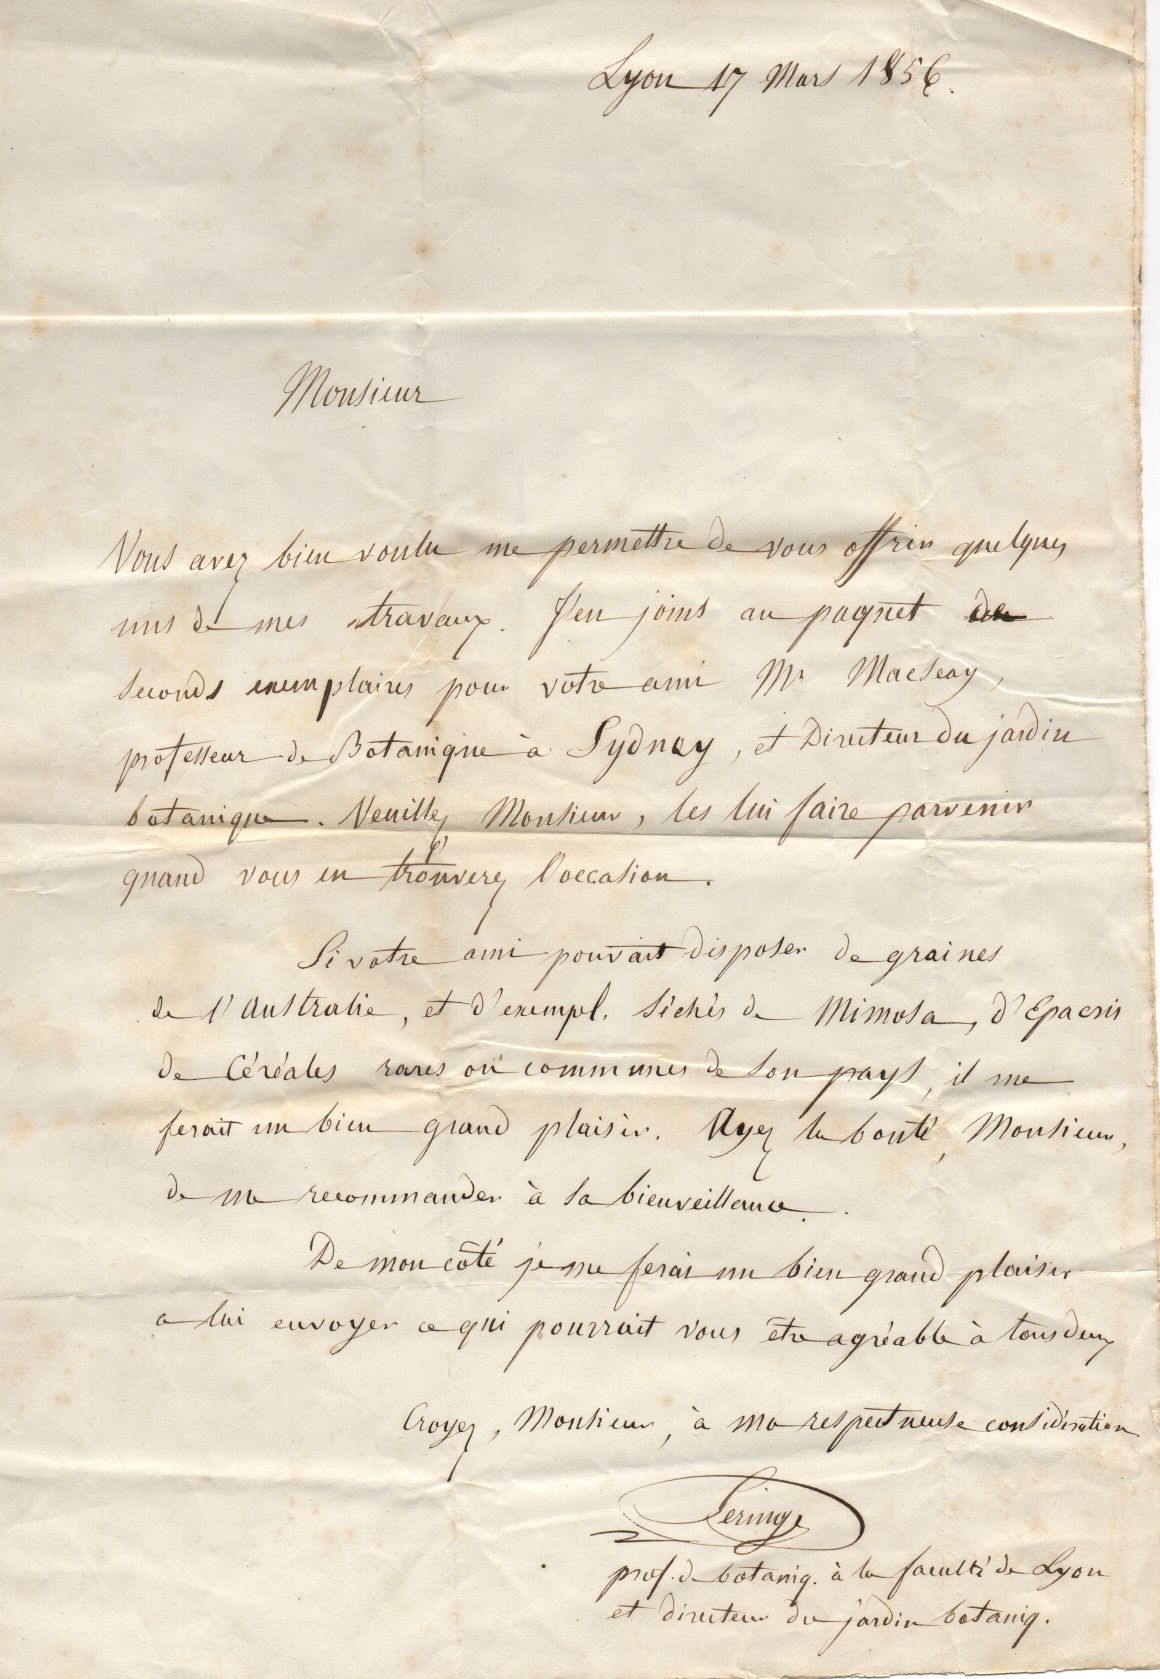 Lyon 17 Mars 1856.
Monsieur
Vous avez bien voulu me permettre de vous offrir quelques
uns de mes travaux. J'en joins au paquet de
seconds exemplaires pour votre ami Mr MacLeay,
professeur de Botanique à Sydney, et Directeur du jardin
botanique. Veuillez, Monsieur, les lui faire parvenir
quand vous en trouverez l'occasion.
Si votre ami pouvait disposer de graines
de l'Australie, et d'exempl. séchés de Mimosa, d'Epacris
de Céréales rares ou communes de son pays, il me
ferait un bien grand plaisir. Ayez la bonté, Monsieur,
de me recommander à sa bienveillance.
De mon côté je me ferai un bien grand plaisir
a lui envoyer ce qui pourrait vous être agréable à tous deux
Croyez, Monsieur, à ma respectueuse considération
Seringe
prof. de botaniq. à la faculté de Lyon
et directeur du jardin botaniq.